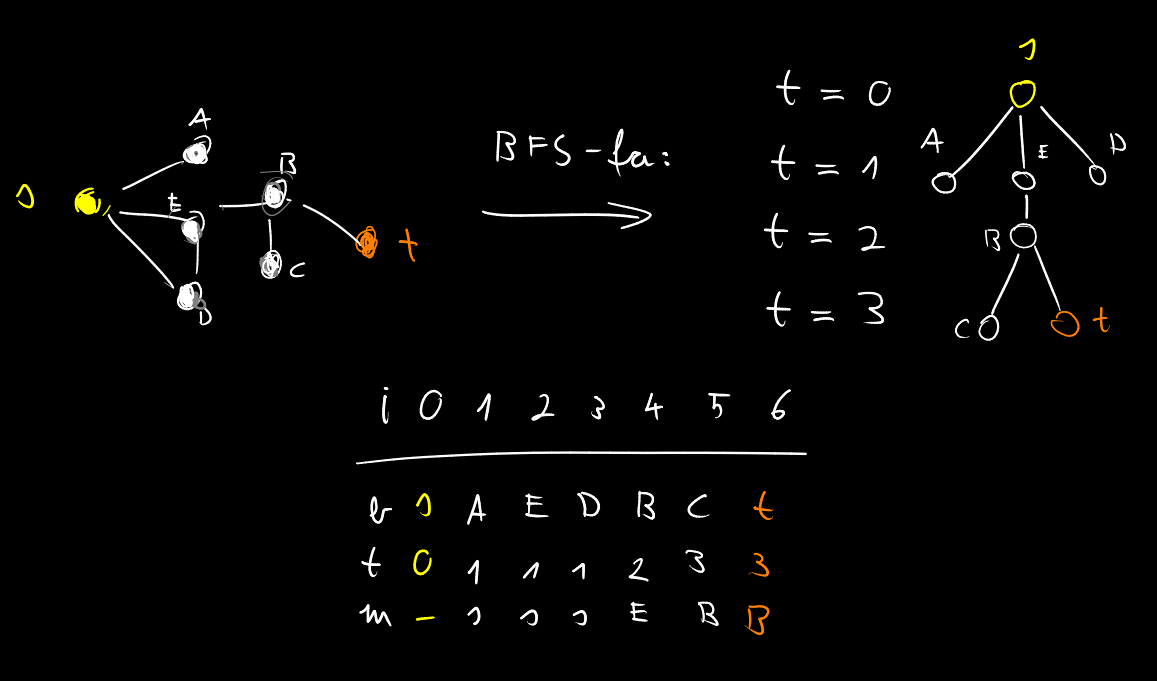 A
s
E
B
D
C
t
BFS-fa:
t = 0
t = 1
t = 2
t = 3
s
A
E
D
B
C
t
i 0 1 2 3 4 5 6
b s A E D B C t
t 0 1 1 1 2 3 3
m - s s s E B B